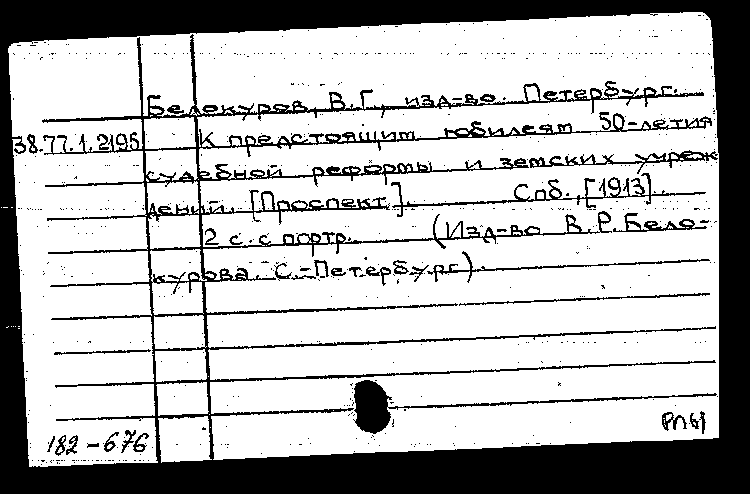 Белокуров, В.Г., изд-во. Петербург.
38.77.1.2195 К предстоящим юбилеям 50-летия
судебной реформы и земских учреж
дений. [Проспект]. Спб., [1913].
2 с. с портр. (Изд-во В.Р. Бело-
курова. С.-Петербург).
182-676